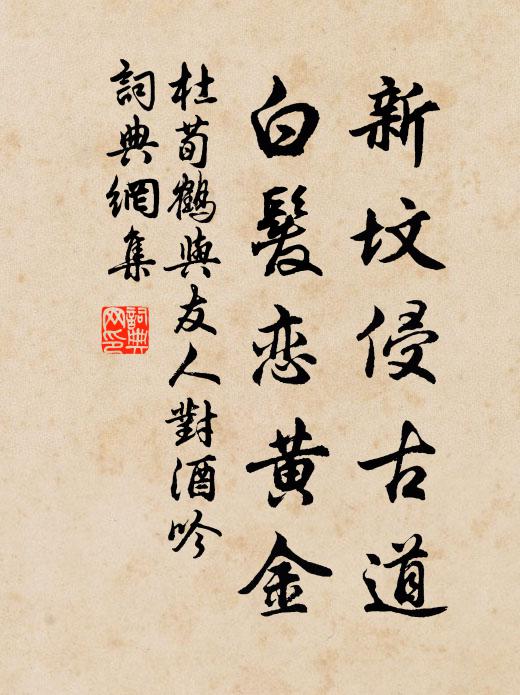 新坟侵古道
白髮恋黄金
杜荀鶴與友人對酒吟
詞典網集
詞典网印